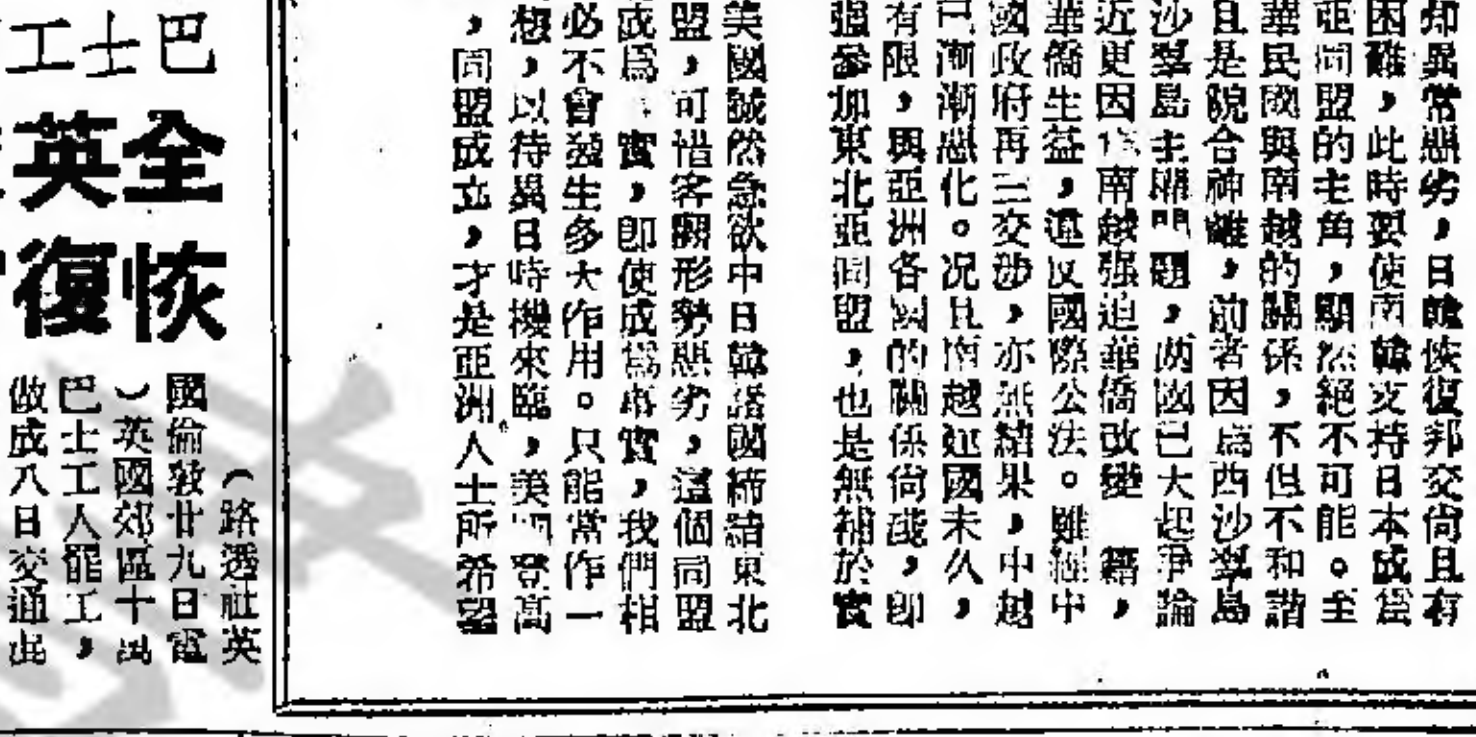 却異常惡劣，日韓恢復邦交尚且有
困難，此時要使南韓支持日本成爲
亞同盟的主角，顯然絕不可能。至
華民國與南越的關係，不但不和諧
且是貌合神離，前者因爲西沙羣島
沙羣島主權問題，兩國已大起爭論
近更因南越强迫華僑改變籍，
華僑生益，違反國際公法。雖經中
國政府再三交涉，亦無結果，中越
已漸漸惡化。况且南越建國未久，
有限，與亞洲各國的關係尚淺，即
强參加東北亞同盟，也是無補於實
美國誠然急欲中日韓諸國締結東北
盟，可惜客觀形勢惡劣，這個同盟
成爲實，即使成爲事實，我們相
必不會發生多大作用。只能當作一
想，以待異日時機來臨，美登高
，同盟成立，才是亞洲人士所希望
巴士工
全英
恢復
（路透社英
國倫敦廿九日電
）英國郊區十萬
巴士工人罷工，
做成八日交通